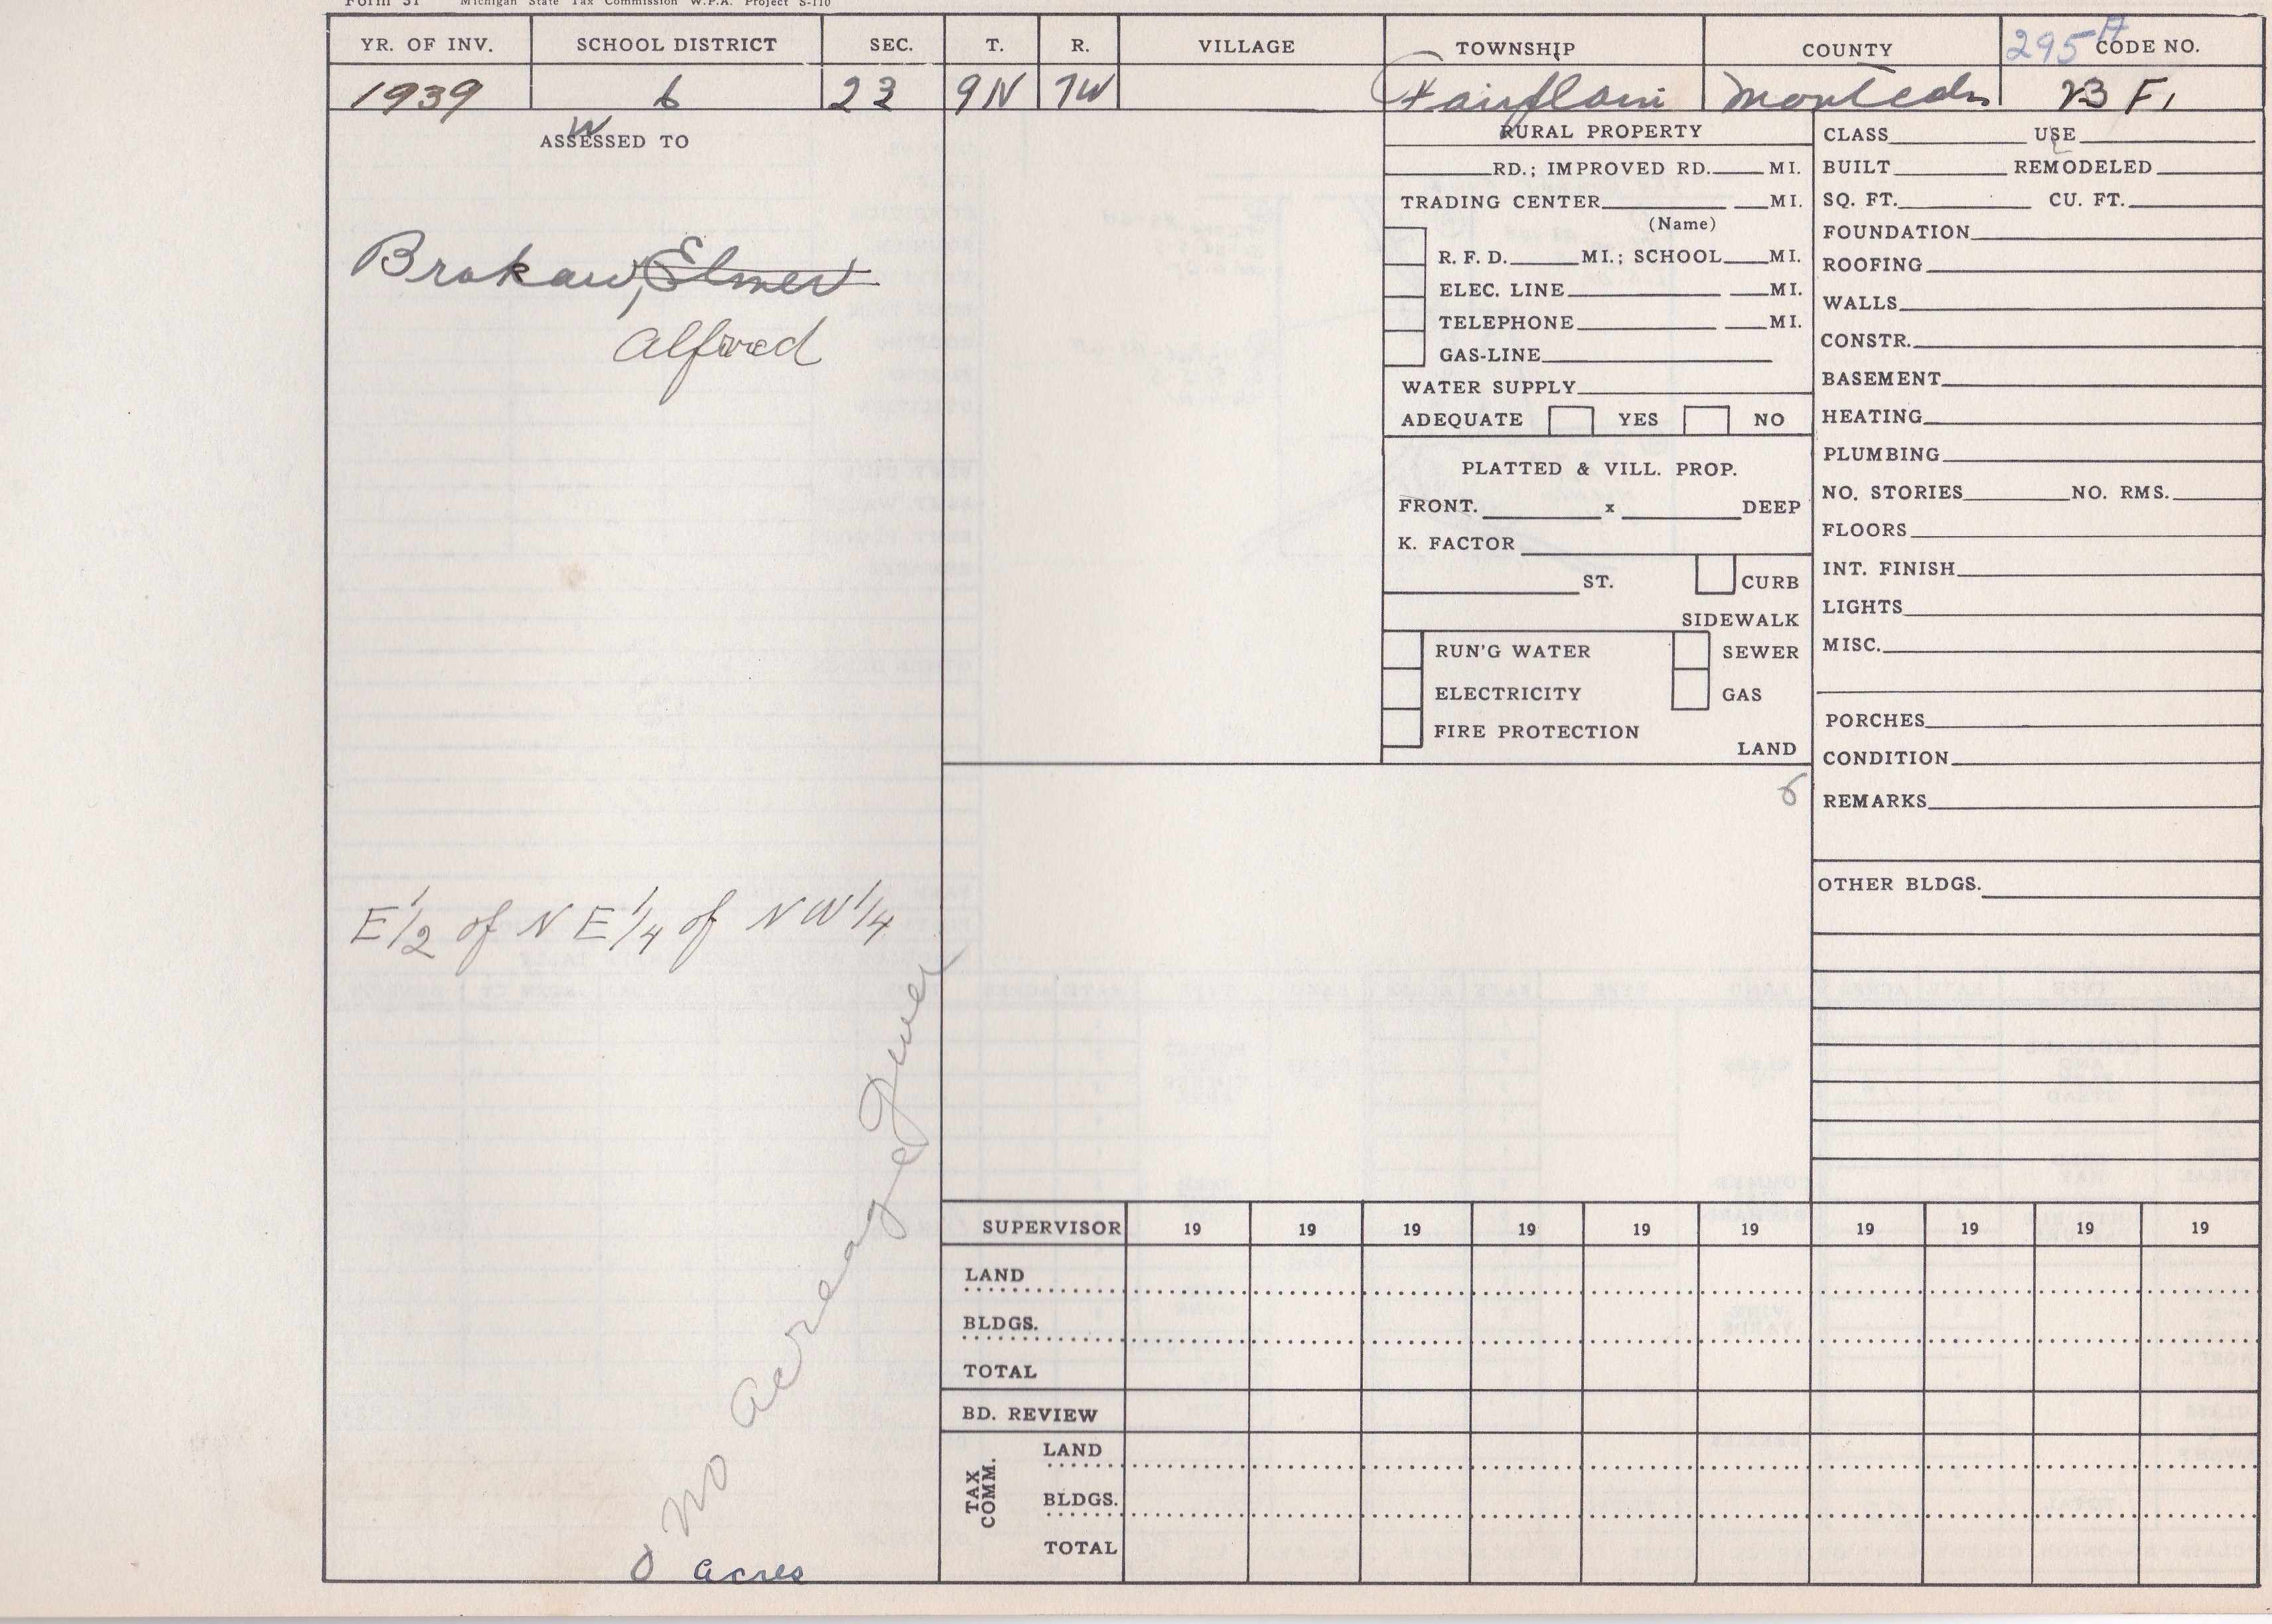 Form 31 Michigan State Tax Commission W.P.A. Project S-110
YR. OF INV. SCHOOL DISTRICT SEC. T. R. VILLAGE TOWNSHIP COUNTY 295 A CODE NO.
1939 6 23 9N 7W Fairplain Montcalm 23 F1
W
ASSESSED TO
Brokaw, Elmer
Alfred
E 1/2 of NE 1/4 of NW 1/4
no acreage given
0 acres
RURAL PROPERTY
RD.; IMPROVED RD. MI.
TRADING CENTER MI.
(Name)
R. F. D. MI.; SCHOOL MI.
ELEC. LINE MI.
TELEPHONE MI.
GAS-LINE
WATER SUPPLY
ADEQUATE YES NO
PLATTED & VILL. PROP.
FRONT. x DEEP
K. FACTOR
ST. CURB
SIDEWALK
RUN'G WATER SEWER
ELECTRICITY GAS
FIRE PROTECTION
LAND
6
CLASS USE
BUILT REMODELED
SQ. FT. CU. FT.
FOUNDATION
ROOFING
WALLS
CONSTR.
BASEMENT
HEATING
PLUMBING
NO. STORIES NO. RMS.
FLOORS
INT. FINISH
LIGHTS
MISC.
PORCHES
CONDITION
REMARKS
OTHER BLDGS.
SUPERVISOR 19 19 19 19 19 19 19 19 19 19
LAND
BLDGS.
TOTAL
BD. REVIEW
TAX COMM.
LAND
BLDGS.
TOTAL